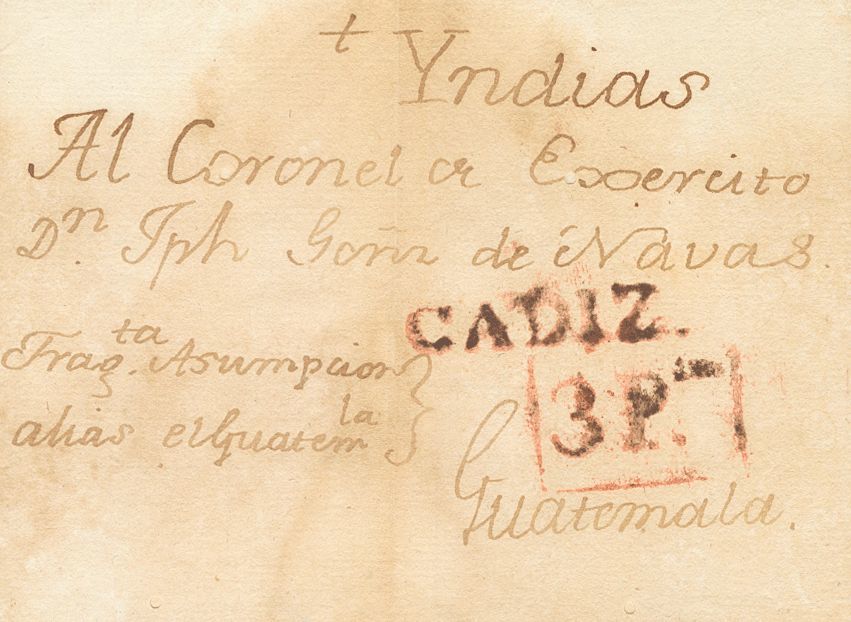 † Yndias
Al Coronel de Exercito
Dn. Jph Goñz de Navas.
CADIZ.
Fragta. Asumpcion
3 P.
alias el Guatemla
Guatemala.